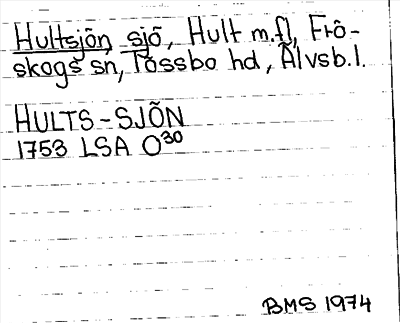 Hultsjön, sjö, Hult m.fl, Frö-
skogs sn, Tössbo hd, Älvsb.l.
HULTS-SJÖN
1753 LSA O30
BMS 1974